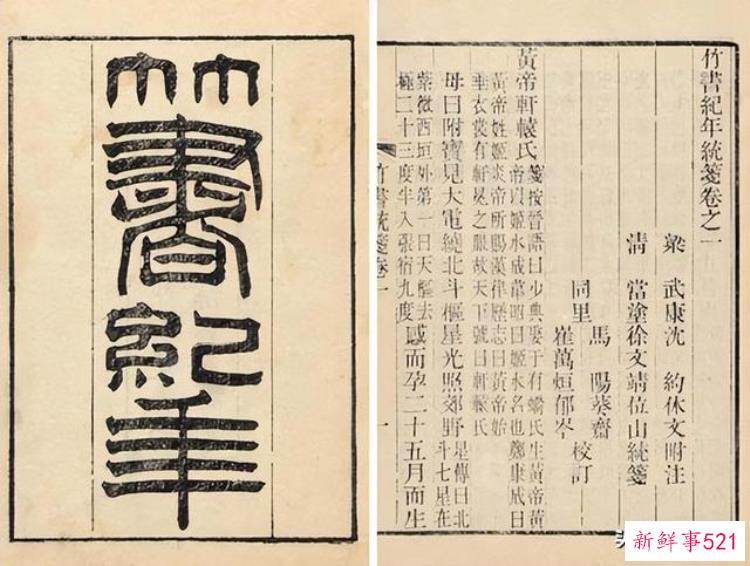 竹書紀年
竹書紀年統箋卷之一
梁 武康沈 約休文附注
清 當塗徐文靖位山統箋
馬 陽葵齋
同里 校訂
崔萬烜郁岑
黃帝軒轅氏 箋按晉語曰少典娶于有蟜氏生黃帝黃
帝以姬水成韋昭曰姬水名也鄭康成曰
黃帝姓姬炎帝所賜漢律歷志曰黃帝始
垂衣裳有軒冕之服故天下號曰軒轅氏
母曰附寶見大電繞北斗樞星光照郊野 星傳曰北
斗七星在
紫微西垣外第一曰天樞去
極二十三度半入張宿九度 感而孕二十五月而生
竹書統箋卷一
一
新鲜事521